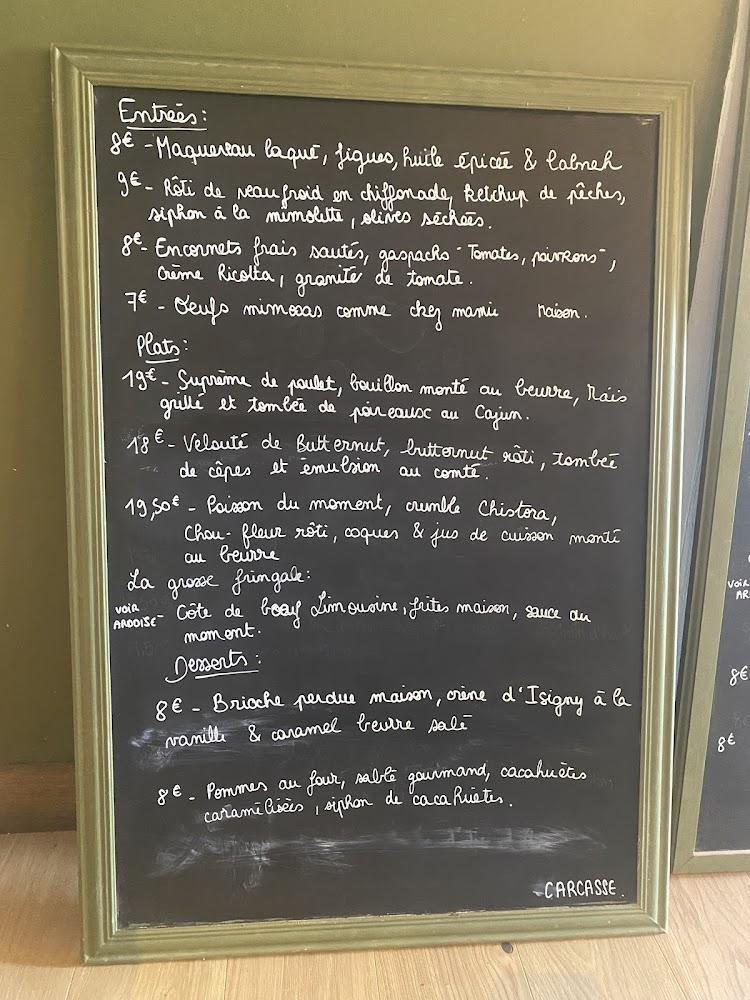 Entrées :
8€ - Maquereau laqué, figues, huile épicée & labneh
9€ - Rôti de veau froid en chiffonade, ketchup de pêches,
siphon à la mimolette, olives séchées.
8€ - Encornets frais sautés, gaspacho "Tomates, poivrons",
crème Ricotta, granité de tomate.
7€ - Oeufs mimosas comme chez mamie maison.
Plats :
19€ - Suprême de poulet, bouillon monté au beurre, maïs
grillé et tombée de poireaux au Cajun.
18€ - Velouté de Butternut, butternut rôti, tombée
de cêpes et émulsion au comté.
19,50€ - Poisson du moment, crumble Chistora,
Chou-fleur rôti, coques & jus de cuisson monté
au beurre
La grosse fringale :
VOIR
ARDOISE - Côte de boeuf Limousine, frites maison, sauce du
moment.
Desserts :
8€ - Brioche perdue maison, crème d'Isigny à la
vanille & caramel beurre salé
8€ - Pommes au four, sablé gourmand, cacahuètes
caramélisées, siphon de cacahuètes.
-CARCASSE.
VOIR
AR
8€
8€